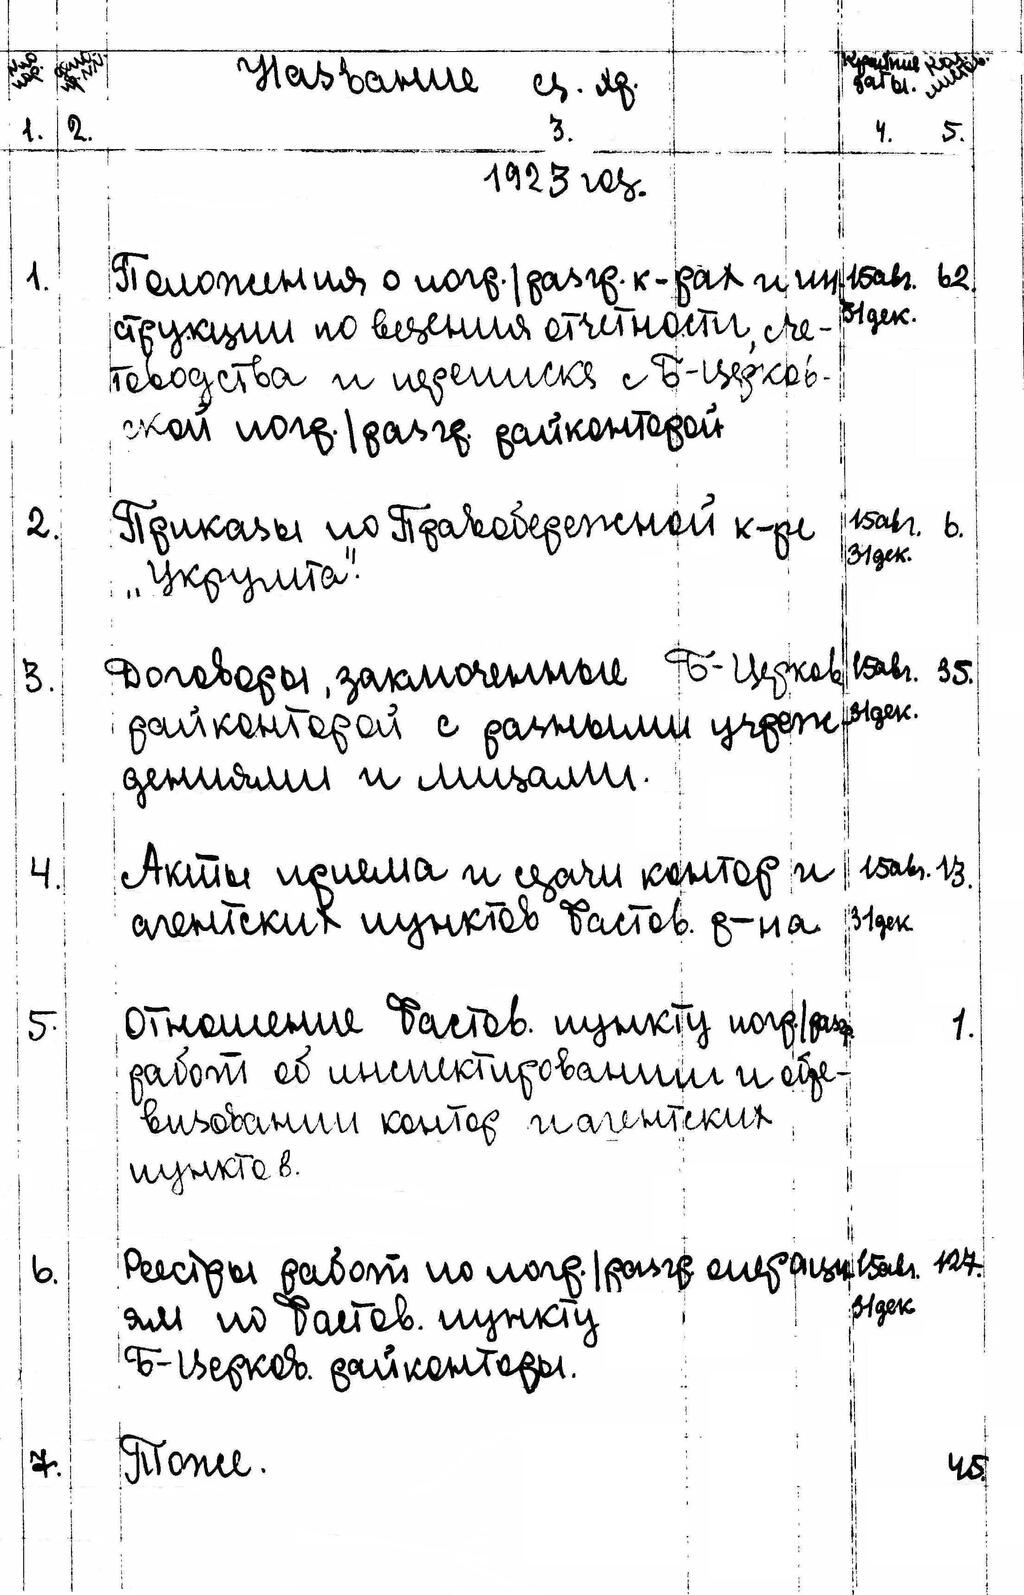 Название ед. хр.
Крайние даты.
1. 2. 3. 4. 5.
1923 год.
1. Положения о погр./разгр. к-рах и ин 15авг. 62.
струкции по ведения отчетности, сче- 31дек.
товодства и переписка с Б-Церков-
ской погр./разгр. райконторой
2. Приказы по Правобережной к-ре 15авг. 6.
„Укрумта". 31дек.
3. Договоры, заключенные Б-Церков 15авг. 35.
райконторой с разными учреж 31дек.
дениями и лицами.
4. Акты приема и сдачи контор и 15авг. 13.
агентских пунктов Фастов. р-на. 31дек
5. Отношение Фастов. пункту погр./разгр 1.
работ об инспектировании и обре-
визовании контор и агентских
пунктов.
6. Реестры работ по погр./разгр. операци 15авг. 127.
ям по Фастов. пункту 31дек
Б-Церков. райконторы.
7. Тоже. 45.